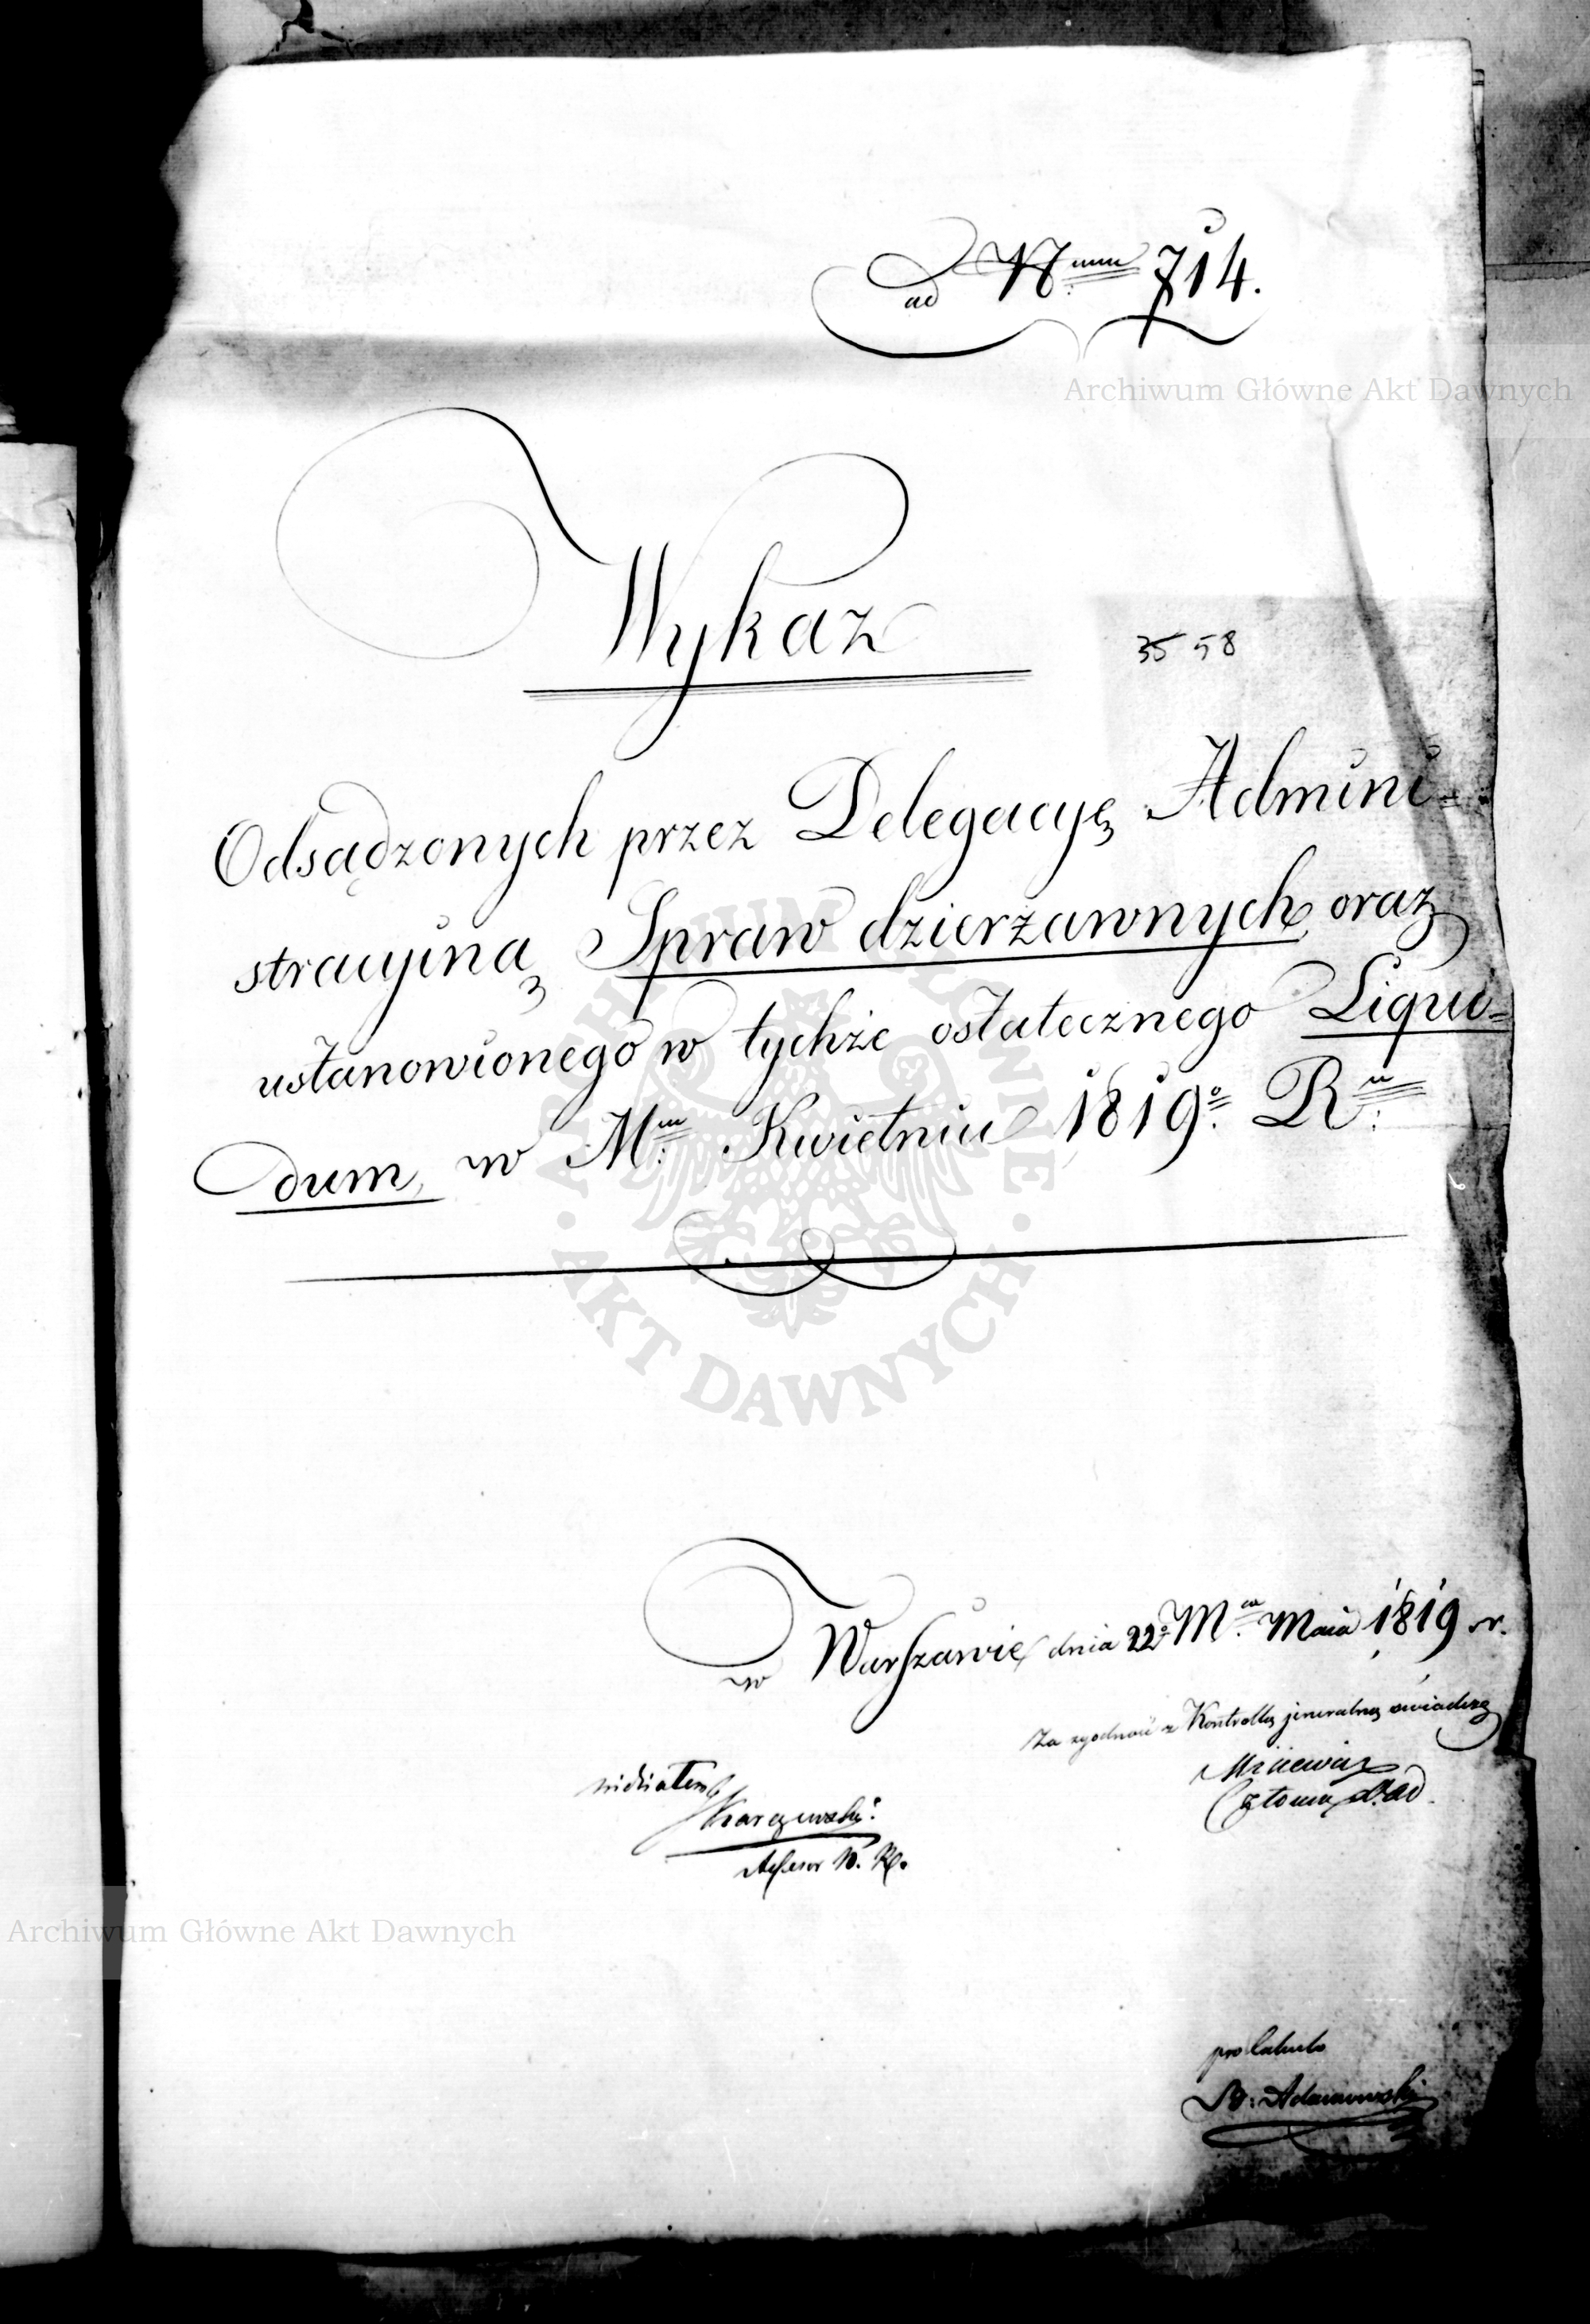 ad Nrum 714.
Archiwum Główne Akt Dawnych
Wykaz
35 58
Odsądzonych przez Delegacyę Admini=
stracyiną Spraw dzierżawnych oraz
ustanowionego w tychże ostatecznego Liqui=
dum, w Mcu Kwietniu 1819o Ru
ARCHIWUM GŁÓWNE
AKT DAWNYCH
w Warszawie dnia 22o Mca Maia 1819 r.
Za zgodność z Kontrollą jeneralną świadczę
Członek D. Ad.
vidi
Karczewski
Assesor N. K.
Archiwum Główne Akt Dawnych
pro Calculo
Adamowski